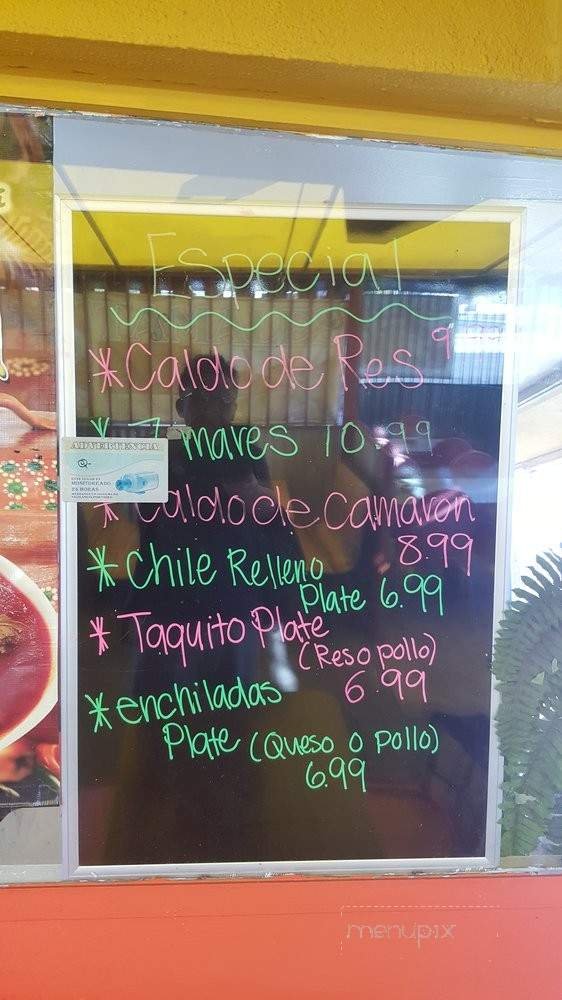 Especial
* Caldo de Res 9
* 7 mares 10.99
ADVERTENCIA
ESTE LUGAR ES
MONITOREADO
24 HORAS
* Caldo de Camaron
8.99
* Chile Relleno
Plate 6.99
* Taquito Plate
(Res o pollo)
6.99
* enchiladas
Plate (Queso o pollo)
6.99
menupix